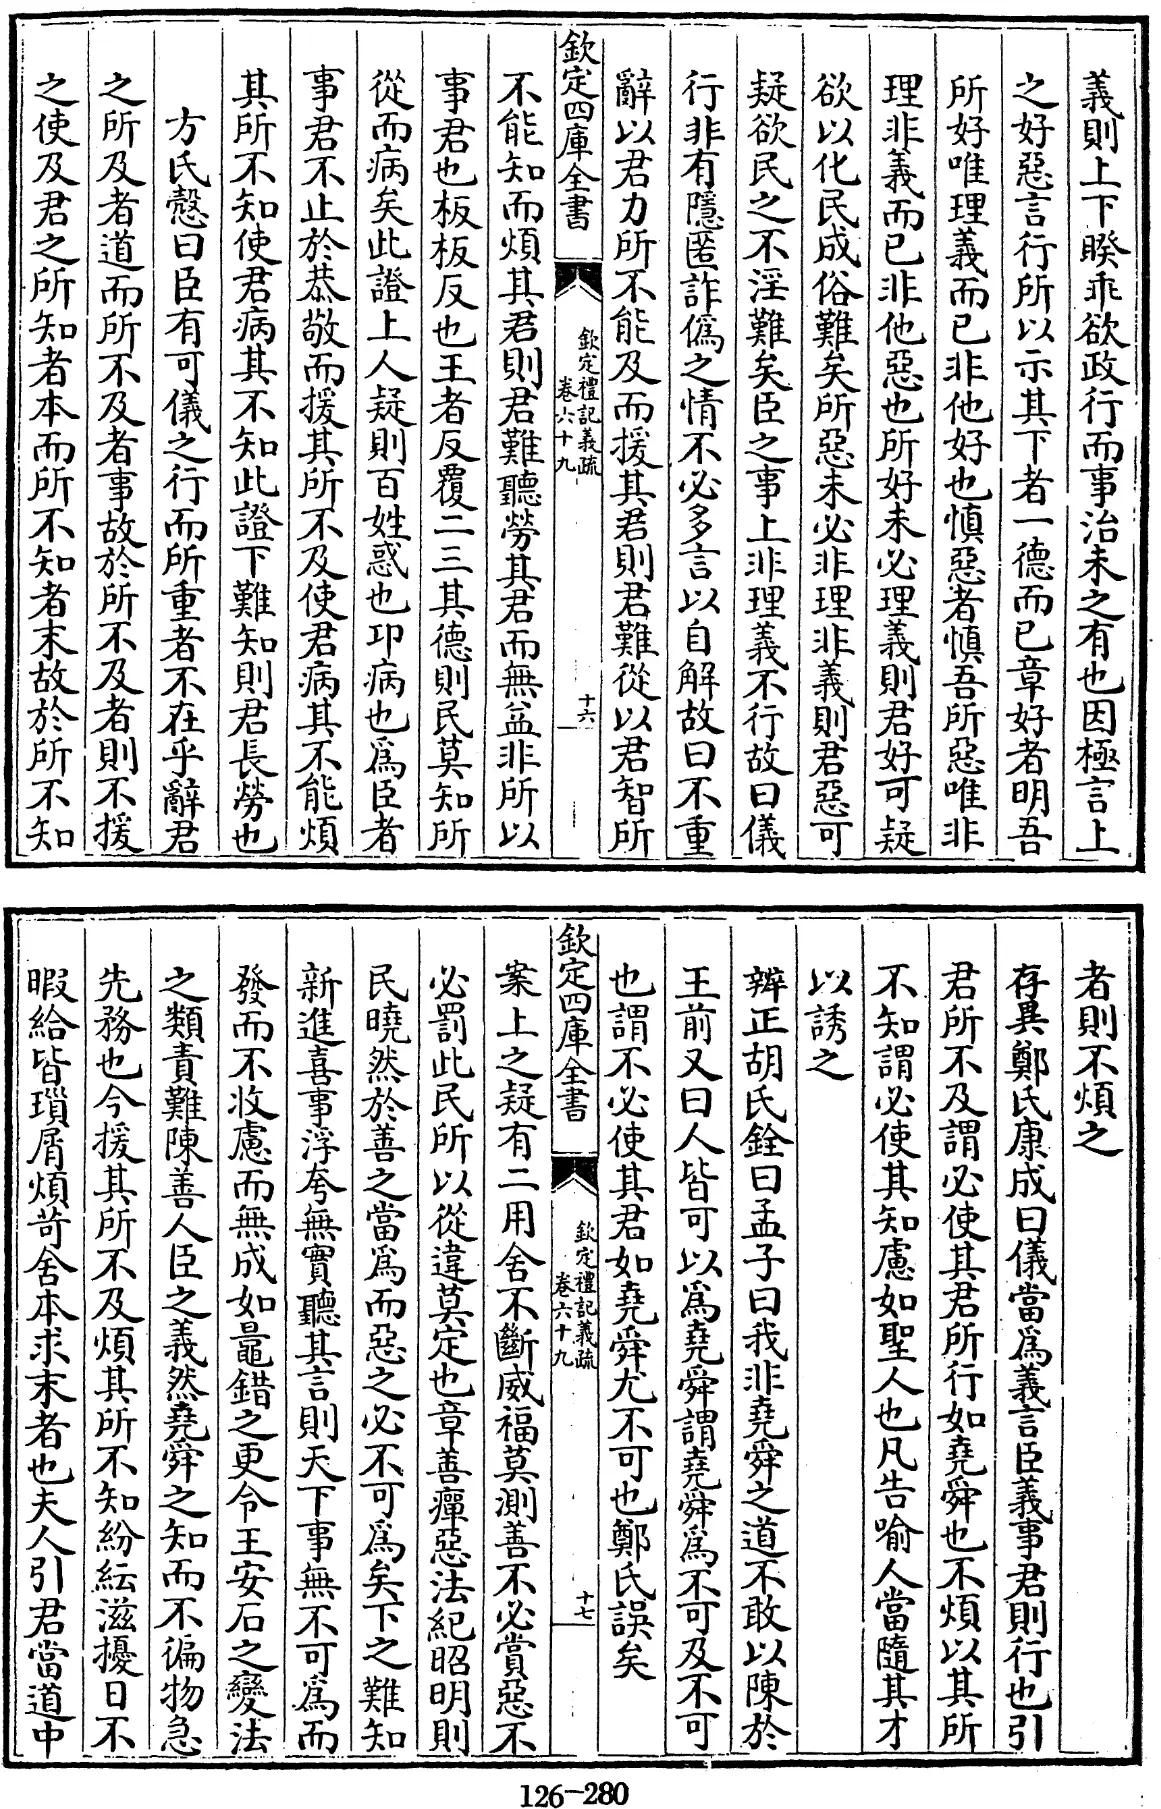 義則上下睽乖欲政行而事治未之有也因極言上
之好惡言行所以示其下者一德而已章好者明吾
所好唯理義而已非他好也慎惡者慎吾所惡唯非
理非義而已非他惡也所好未必理義則君好可疑
欲以化民成俗難矣所惡未必非理非義則君惡可
疑欲民之不淫難矣臣之事上非理義不行故曰儀
行非有隱匿詐僞之情不必多言以自解故曰不重
辭以君力所不能及而援其君則君難從以君智所
欽定四庫全書
欽定禮記義疏
卷六十九
十六
不能知而煩其君則君難聽勞其君而無益非所以
事君也板板反也王者反覆二三其德則民莫知所
從而病矣此證上人疑則百姓惑也卭病也爲臣者
事君不止於恭敬而援其所不及使君病其不能煩
其所不知使君病其不知此證下難知則君長勞也
方氏慤曰臣有可儀之行而所重者不在乎辭君
之所及者道而所不及者事故於所不及者則不援
之使及君之所知者本而所不知者末故於所不知
者則不煩之
存異鄭氏康成曰儀當爲義言臣義事君則行也引
君所不及謂必使其君所行如堯舜也不煩以其所
不知謂必使其知慮如聖人也凡告喻人當隨其才
以誘之
辨正胡氏銓曰孟子曰我非堯舜之道不敢以陳於
王前又曰人皆可以爲堯舜謂堯舜爲不可及不可
也謂不必使其君如堯舜尤不可也鄭氏誤矣
欽定四庫全書
欽定禮記義疏
卷六十九
十七
案上之疑有二用舍不斷威福莫測善不必賞惡不
必罰此民所以從違莫定也章善癉惡法紀昭明則
民曉然於善之當爲而惡之必不可爲矣下之難知
新進喜事浮夸無實聽其言則天下事無不可爲而
發而不收慮而無成如鼂錯之更令王安石之變法
之類責難陳善人臣之義然堯舜之知而不徧物急
先務也今援其所不及煩其所不知紛紜滋擾日不
暇給皆瑣屑煩苛舍本求末者也夫人引君當道中
126-280